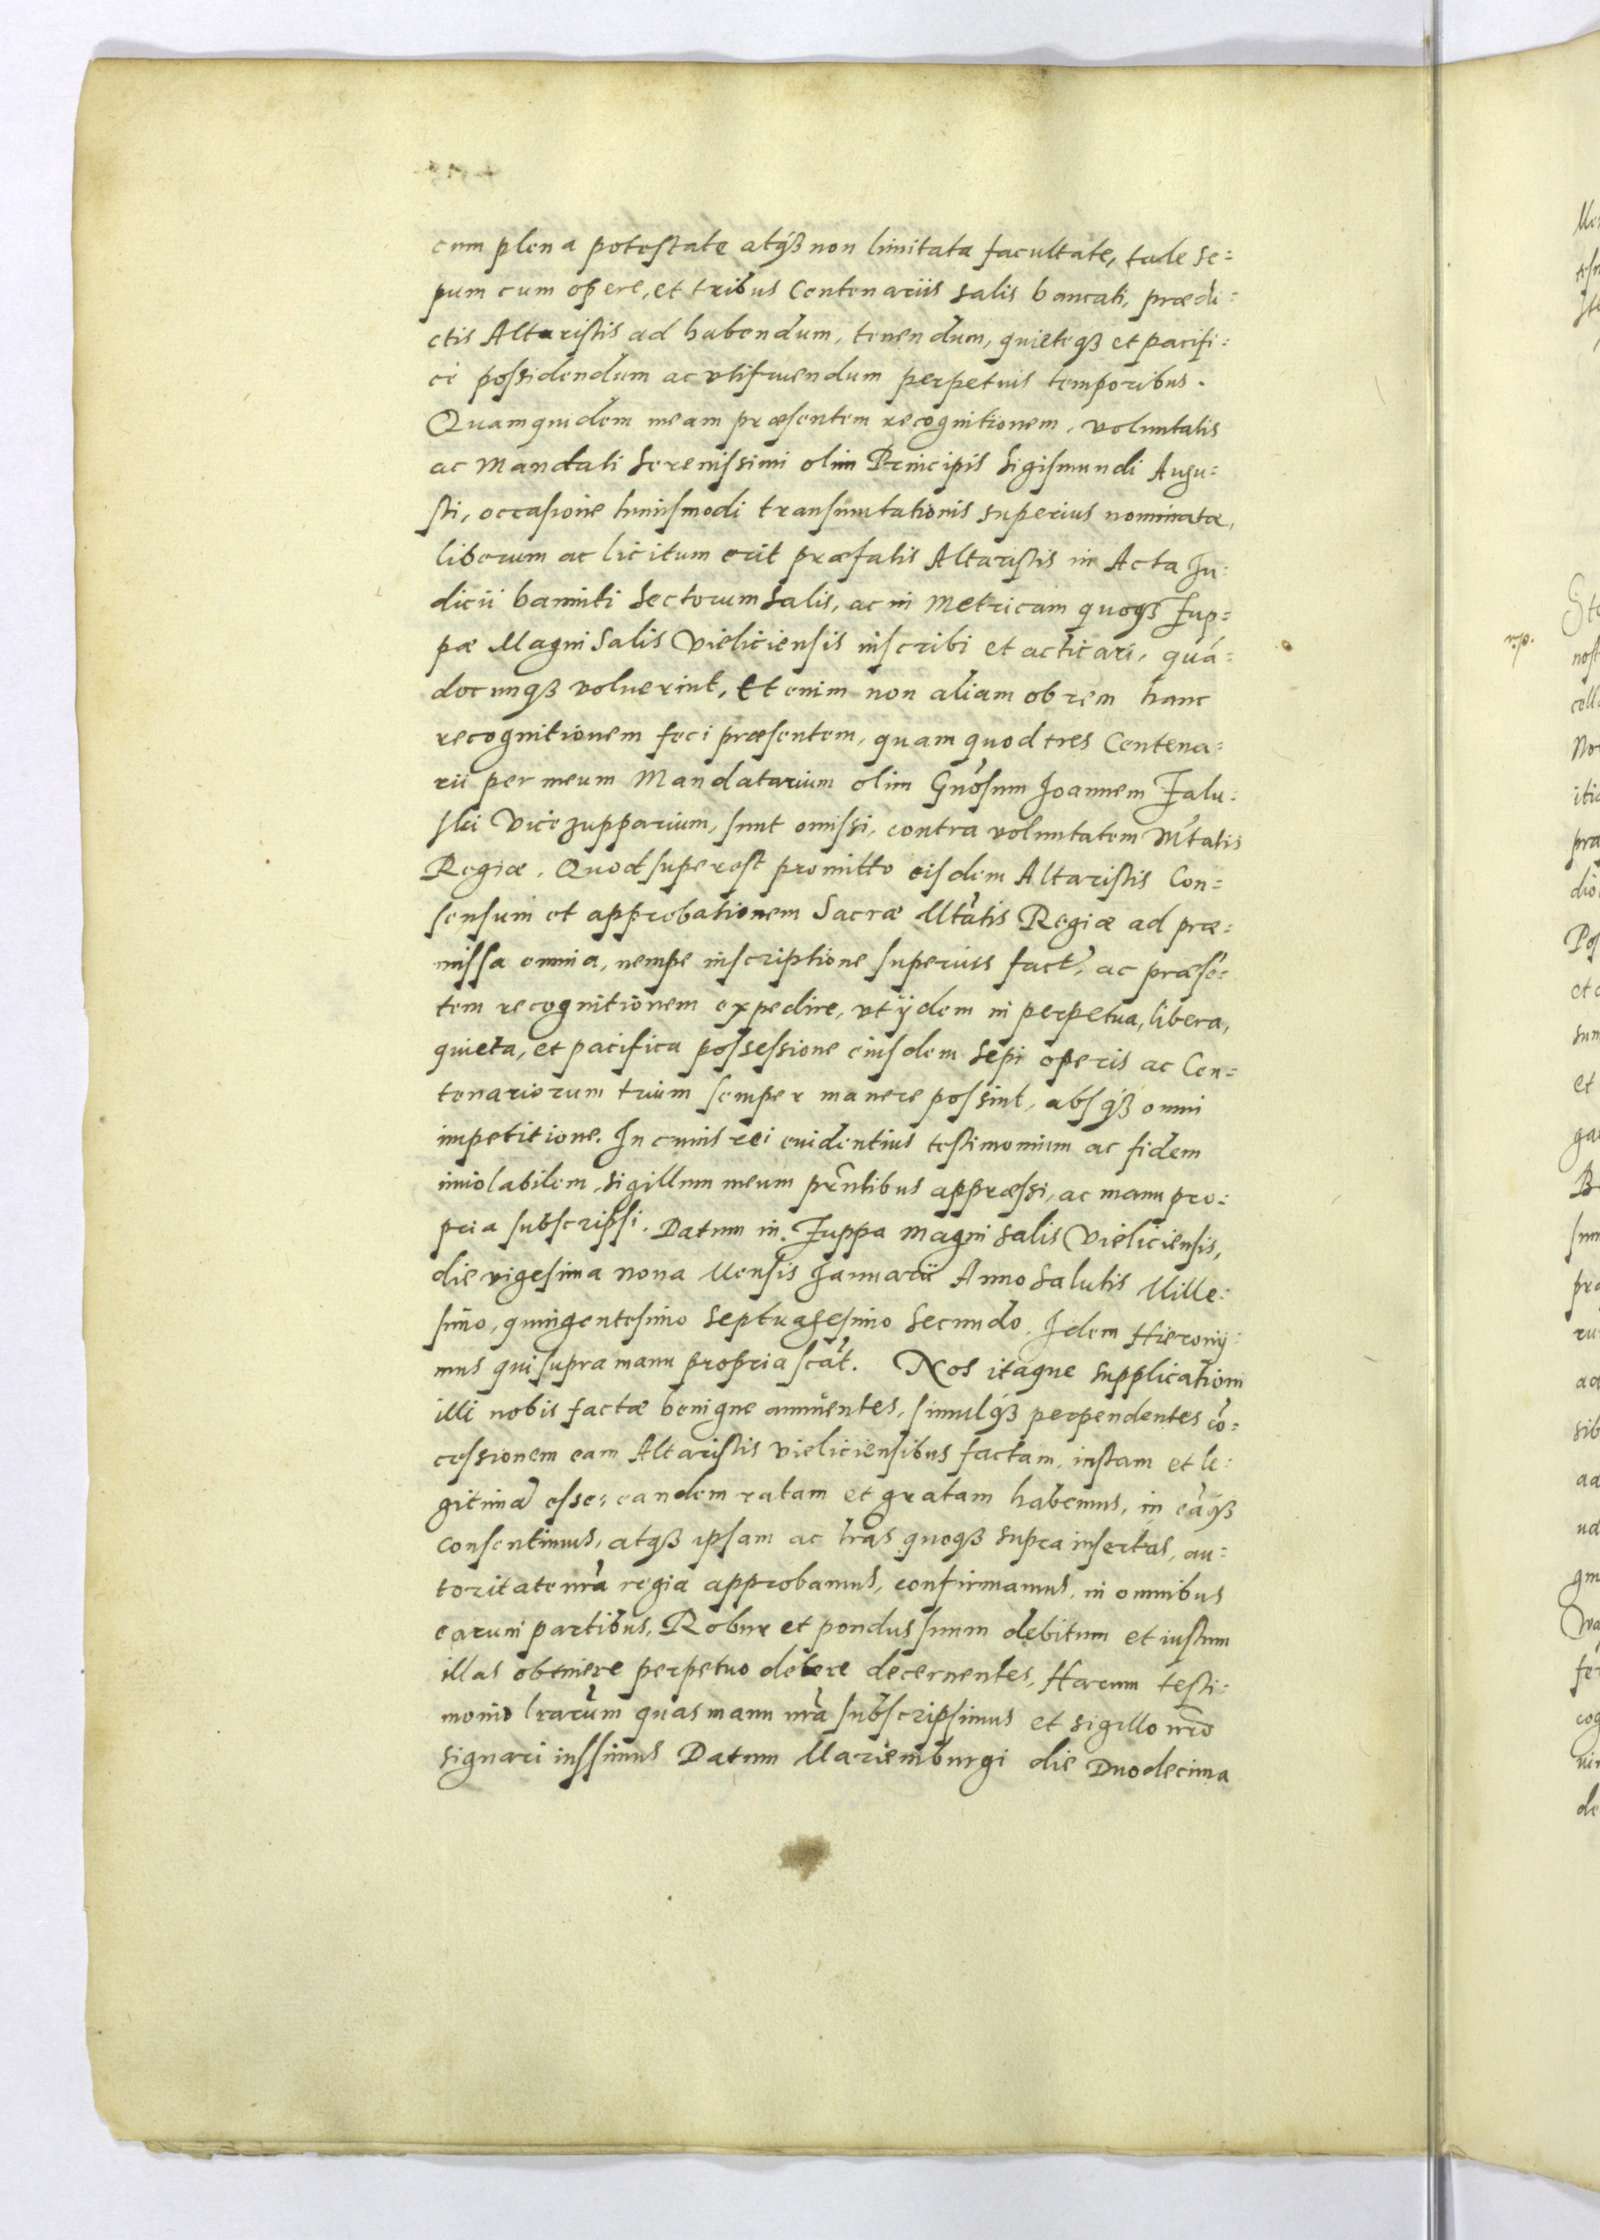 cum plena potestate atq3 non limitata facultate, tale se=
pum cum opere, et tribus Centenariis salis bancati, prædi=
ctis Altaristis ad habendum, tenendum, quieteq3 et pacifi=
cè possidendum ac vtifruendum perpetuis temporibus.
Quamquidem meam præsentem recognitionem, voluntatis
ac Mandati Serenissimi olim Principis Sigismundi Augu=
sti, occasione huiusmodi transmutationis superius nominatæ,
liberum ac licitum erit præfatis Altaristis in Acta Ju=
dicii banniti Sectorum Salis, ac in Metricam quoq3 Zup=
pæ Magni Salis Vieliciensis inscribi et acticari, quā=
docunq3 voluerint, Et enim non aliam ob rem hanc
recognitionem feci præsentem, quam quod tres Centena=
rii per meum Mandatarium olim Gn̄osum Joannem Zalu=
ski Vice zupparium, sunt omissi, contra voluntatem M̄tatis
Regiæ. Quod superest promitto eisdem Altaristis Con=
sensum et approbationem Sacræ Mt̄atis Regiæ ad præ=
missa omnia, nempe inscriptione superius fact̄, ac præsē=
tem recognitionem expedire, vt ijdem in perpetua, libera,
quieta, et pacifica possessione eiusdem Sepi operis ac Cen=
tenariorum trium semper manere possint, absq3 omni
impetitione. In cuius rei euidentius testimonium ac fidem
inuiolabilem, sigillum meum pr̄ntibus appræssi, ac manu pro=
pria subscripsi. Datum in Zuppa Magni Salis Vieliciensis,
die vigesima nona Mensis Januarii Anno Salutis Mille=
simo, quingentesimo Septuagesimo Secundo. Idem Hierony=
mus qui supra manu propria sc̄at. Nos itaque supplicationi
illi nobis factæ benigne annuentes, simulq3 perpendentes cō=
cessionem eam Altaristis Vieliciensibus factam, iustam et le=
gitimā esse: eandem ratam et gratam habemus, in eāq3
consentimus, atq3 ipsam ac lr̄as quoq3 supra insertas, au=
toritate nr̄a regia approbamus, confirmamus, in omnibus
earum partibus, Robur et pondus suum debitum et iustum
illas obtinere perpetuo debere decernentes, Harum testi=
monio lr̄arum quas manu nr̄a subscripsimus et sigillo nr̄o
signari iussimus Datum Mariemburgi die Duodecima